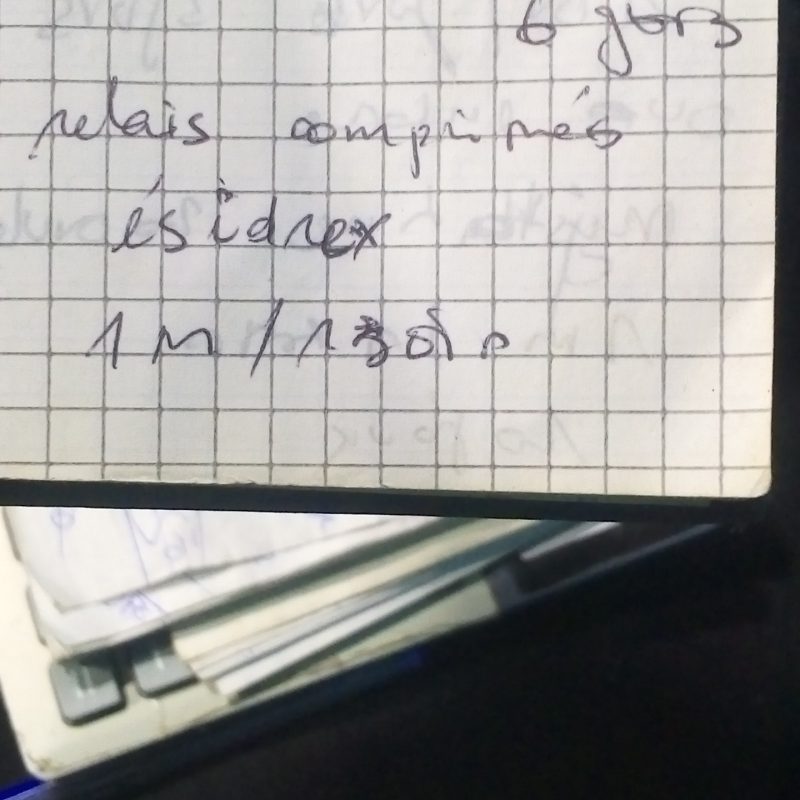 6 jors
relais comprimés
ésidrex
1 m / 1 soir